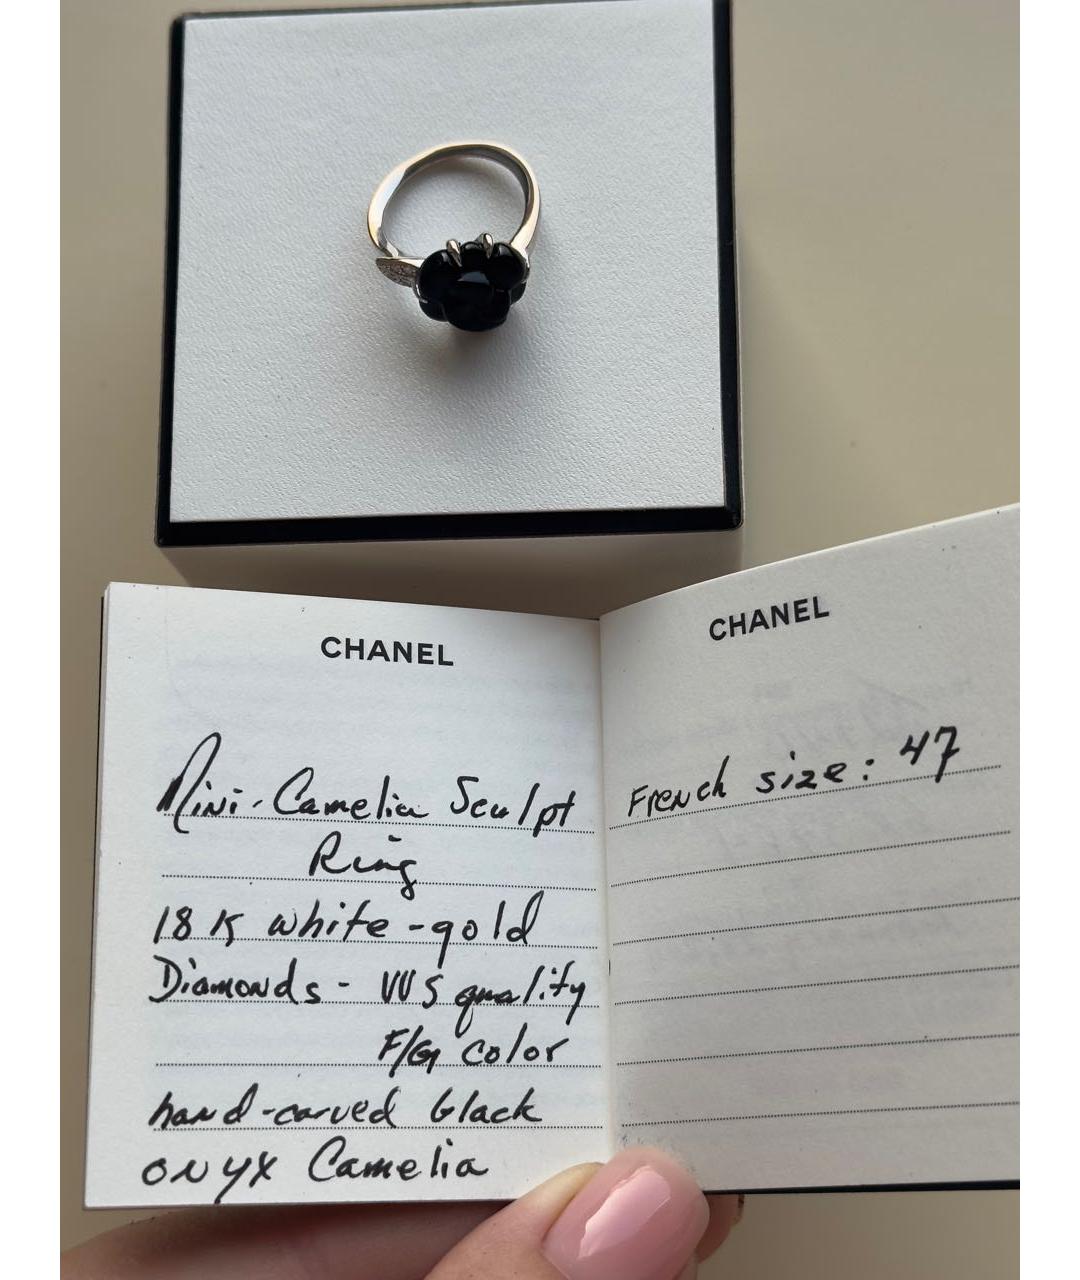 CHANEL
Mini-Camelia Sculpt
Ring
18 K white-gold
Diamonds - VVS quality
F/G color
hand-carved black
onyx Camelia
CHANEL
French size: 47